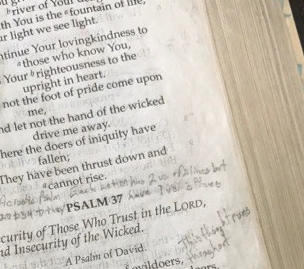 river of Your
th You is the a fountain of life,
ur light we see light.
ntinue Your lovingkindness to
a those who know You,
Your b righteousness to the
upright in heart.
not the foot of pride come upon
me,
nd let not the hand of the wicked
drive me away.
here the doers of iniquity have
fallen;
They have been thrust down and
a cannot rise.
Psalm Each letter has 2
have
PSALM 37
curity of Those Who Trust in the LORD,
nd Insecurity of the Wicked.
A Psalm of David.
this thought runs
throughout
evildoers,
doers,